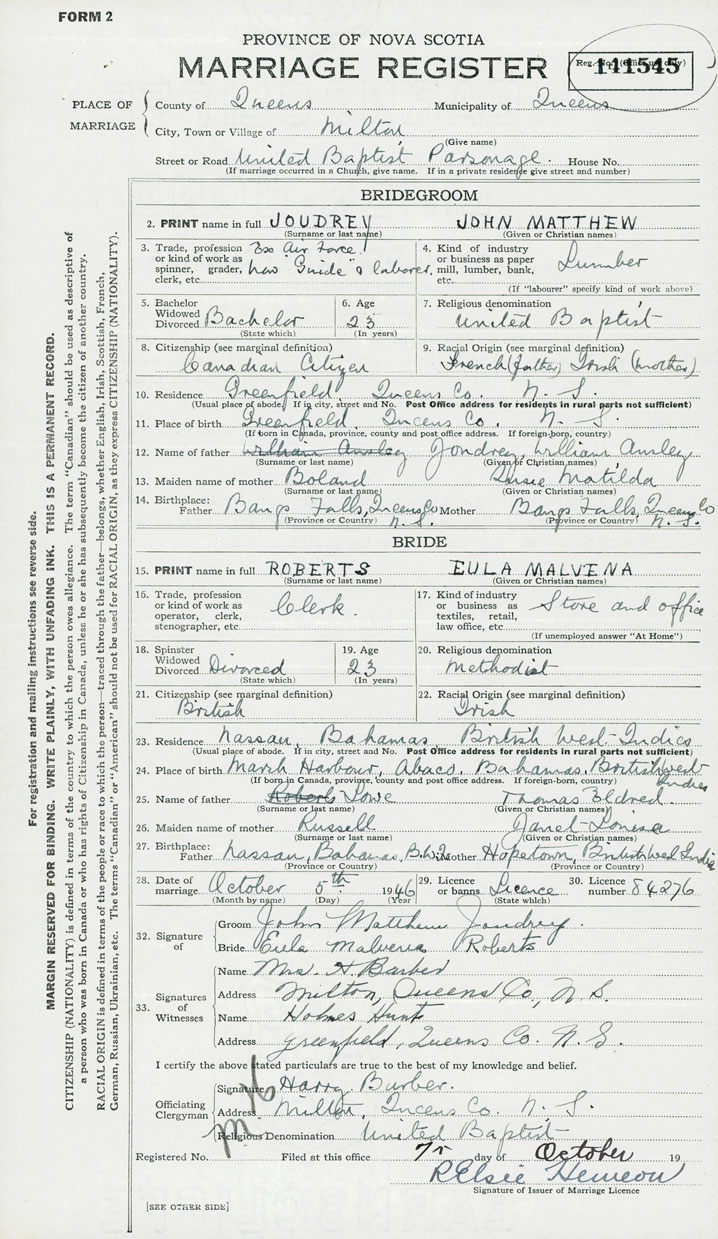 FORM 2
PROVINCE OF NOVA SCOTIA
MARRIAGE REGISTER
Reg. No. (Office use only)
141545
PLACE OF MARRIAGE
County of Queens Municipality of Queens
City, Town or Village of Milton
(Give name)
Street or Road United Baptist Parsonage. House No.
(If marriage occurred in a Church, give name. If in a private residence give street and number)
BRIDEGROOM
2. PRINT name in full JOUDREY JOHN MATTHEW
(Surname or last name) (Given or Christian names)
3. Trade, profession or kind of work as spinner, grader, clerk, etc. Ex Air Force now Guide & laborer
4. Kind of industry or business as paper mill, lumber, bank, etc. Lumber
(If "labourer" specify kind of work above)
5. Bachelor Widowed Divorced Bachelor (State which)
6. Age 23 (In years)
7. Religious denomination United Baptist
8. Citizenship (see marginal definition) Canadian Citizen
9. Racial Origin (see marginal definition) French (father) Irish (mother)
10. Residence Greenfield Queens Co. N. S.
(Usual place of abode. If in city, street and No. Post Office address for residents in rural parts not sufficient)
11. Place of birth Greenfield, Queens Co. N. S.
(If born in Canada, province, county and post office address. If foreign-born, country)
12. Name of father William Ansley Joudrey, William Ansley
(Surname or last name) (Given or Christian names)
13. Maiden name of mother Boland Susie Matilda
(Surname or last name) (Given or Christian names)
14. Birthplace: Father Bangs Falls, Queens Co N. S. Mother Bangs Falls, Queens Co N. S.
(Province or Country) (Province or Country)
BRIDE
15. PRINT name in full ROBERTS EULA MALVENA
(Surname or last name) (Given or Christian names)
16. Trade, profession or kind of work as operator, clerk, stenographer, etc Clerk.
17. Kind of industry or business as textiles, retail, law office, etc. Store and office
(If unemployed answer "At Home")
18. Spinster Widowed Divorced Divorced (State which)
19. Age 23 (In years)
20. Religious denomination Methodist
21. Citizenship (see marginal definition) British
22. Racial Origin (see marginal definition) Irish
23. Residence Nassau, Bahamas, British West Indies
(Usual place of abode. If in city, street and No. Post Office address for residents in rural parts not sufficient)
24. Place of birth Marsh Harbour, Abaco, Bahamas, British West Indies
(If born in Canada, province, county and post office address. If foreign-born, country)
25. Name of father Roberts Lowe Thomas Eldred
(Surname or last name) (Given or Christian names)
26. Maiden name of mother Russell Janet Louisa
(Surname or last name) (Given or Christian names)
27. Birthplace: Father Nassau, Bahamas, B.W.I. Mother Hopetown, British West Indie
(Province or Country) (Province or Country)
28. Date of marriage October 5th 1946
(Month by name) (Day) (Year)
29. License or banns Licence (State which)
30. Licence number 84276
32. Signature of
Groom John Matthew Joudrey.
Bride Eula Malvena Roberts
33. Signatures of Witnesses
Name Mrs. H. Barber
Address Milton, Queens Co, N. S.
Name Holmes Hunt
Address Greenfield, Queens Co. N. S.
I certify the above stated particulars are true to the best of my knowledge and belief.
Officiating Clergyman
Signature Harry Burber.
Address Milton, Queens Co. N. S.
Religious Denomination United Baptist
Registered No. Filed at this office 7th day of October 19
R Elsie Hemeon
Signature of Issuer of Marriage Licence
[SEE OTHER SIDE]
For registration and mailing instructions see reverse side.
MARGIN RESERVED FOR BINDING. WRITE PLAINLY, WITH UNFADING INK. THIS IS A PERMANENT RECORD.
CITIZENSHIP (NATIONALITY) is defined in terms of the country to which the person owes allegiance. The term "Canadian" should be used as descriptive of
a person who was born in Canada or who has rights of Citizenship in Canada, unless he or she has subsequently become the citizen of another country.
RACIAL ORIGIN is defined in terms of the people or race to which the person—traced through the father—belongs, whether English, Irish, Scottish, French,
German, Russian, Ukrainian, etc. The terms "Canadian" or "American" should not be used for RACIAL ORIGIN, as they express CITIZENSHIP (NATIONALITY).